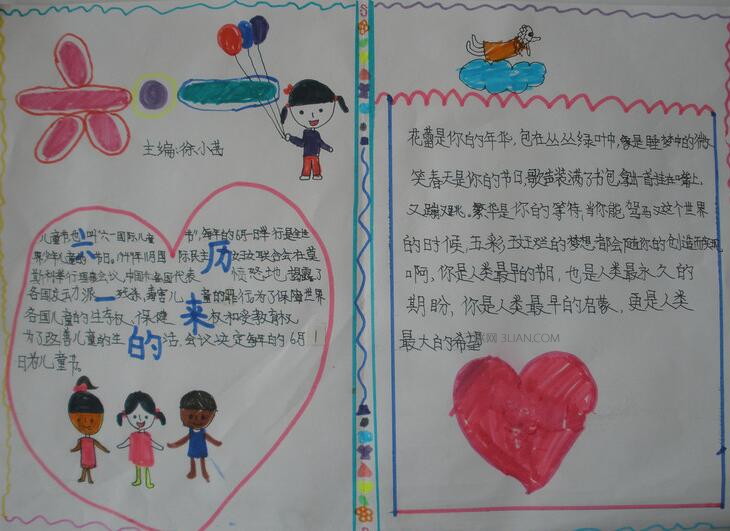 六·一
主编:徐小茜
儿童节也叫“六一国际儿童节”,每年的6月1日举行是全世
界少年儿童的节日。1949年11月国际民主妇女联合会在莫
斯科举行理事会议,中国和各国代表愤怒地揭露了
各国反动派残杀、毒害儿童的罪行为了保障世界
各国儿童的生存权、保健权和受教育权
为了改善儿童的生活,会议决定每年的6月1
日为儿童节。
六一的历来
花蕾是你的年华,包在丛丛绿叶中,像是睡梦中的微
笑春天是你的节日,歌声装满了书包,拿出一首挂在嘴上,
又蹦又跳。繁华是你的等待,当你能驾驭这个世界
的时候,五彩斑斓的梦想,都会随你的创造而实现
啊,你是人类最早的节日,也是人类最永久的
期盼,你是人类最早的启蒙,更是人类
最大的希望
3LIAN.COM